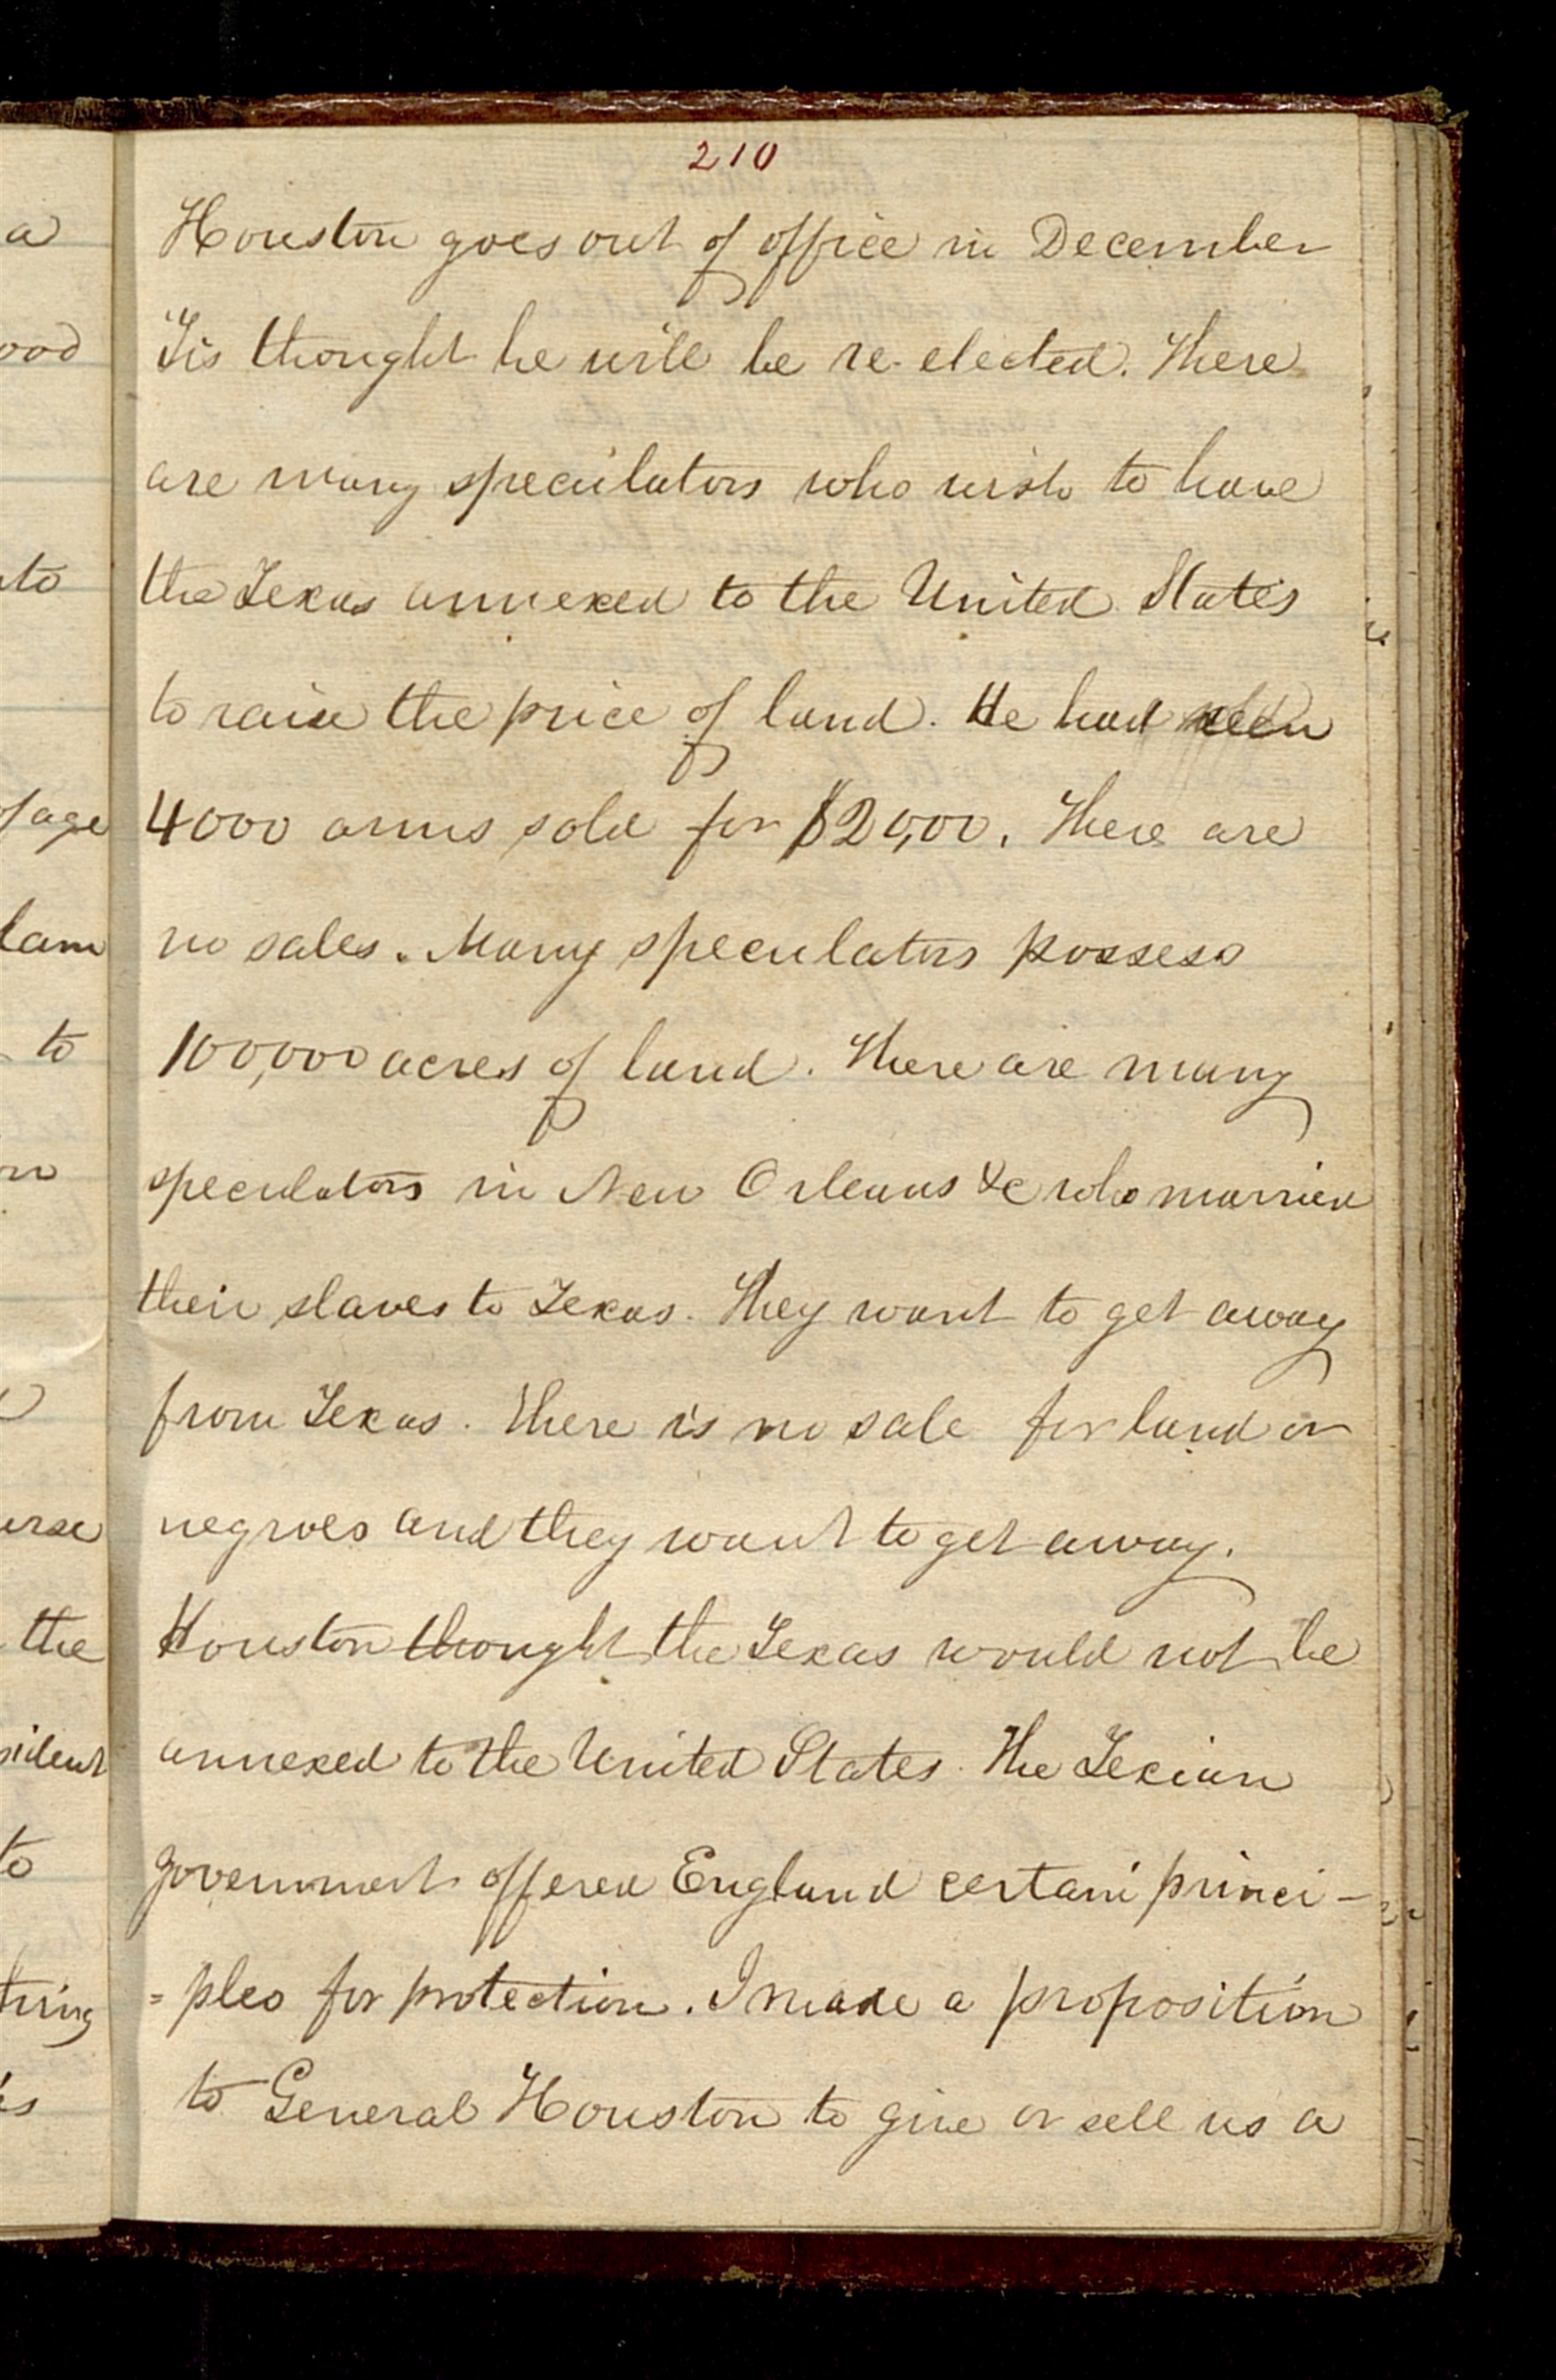 210
Houston goes out of office in December
'Tis thought he will be re-elected. There
are many speculators who wish to have
the Texas annexed to the United States
to raise the price of land. He had seen
4000 arms sold for $20,00. There are
no sales. Many speculators possess
100,000 acres of land. There are many
speculators in New Orleans &c who married
their slaves to Texas. They want to get away
from Texas. There is no sale for land or
negroes and they want to get away.
Houston thought the Texas would not be
annexed to the United States. The Texian
government offered England certain princi-
=ples for protection. I made a proposition
to General Houston to give or sell us a
a
ood
to
of age
lam
to
on
urse
the
sident
to
thing
is